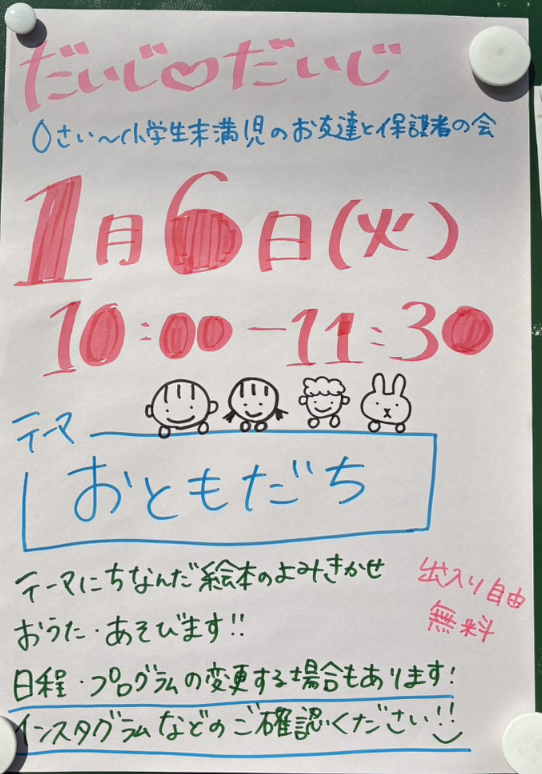 だいじ♡だいじ
0さい〜小学生未満児のお友達と保護者の会
1月6日(火)
10:00-11:30
テーマ
おともだち
テーマにちなんだ絵本のよみきかせ
おうた・あそびます!!
出入り自由
無料
日程・プログラムの変更する場合もあります!
インスタグラムなどのご確認ください!!